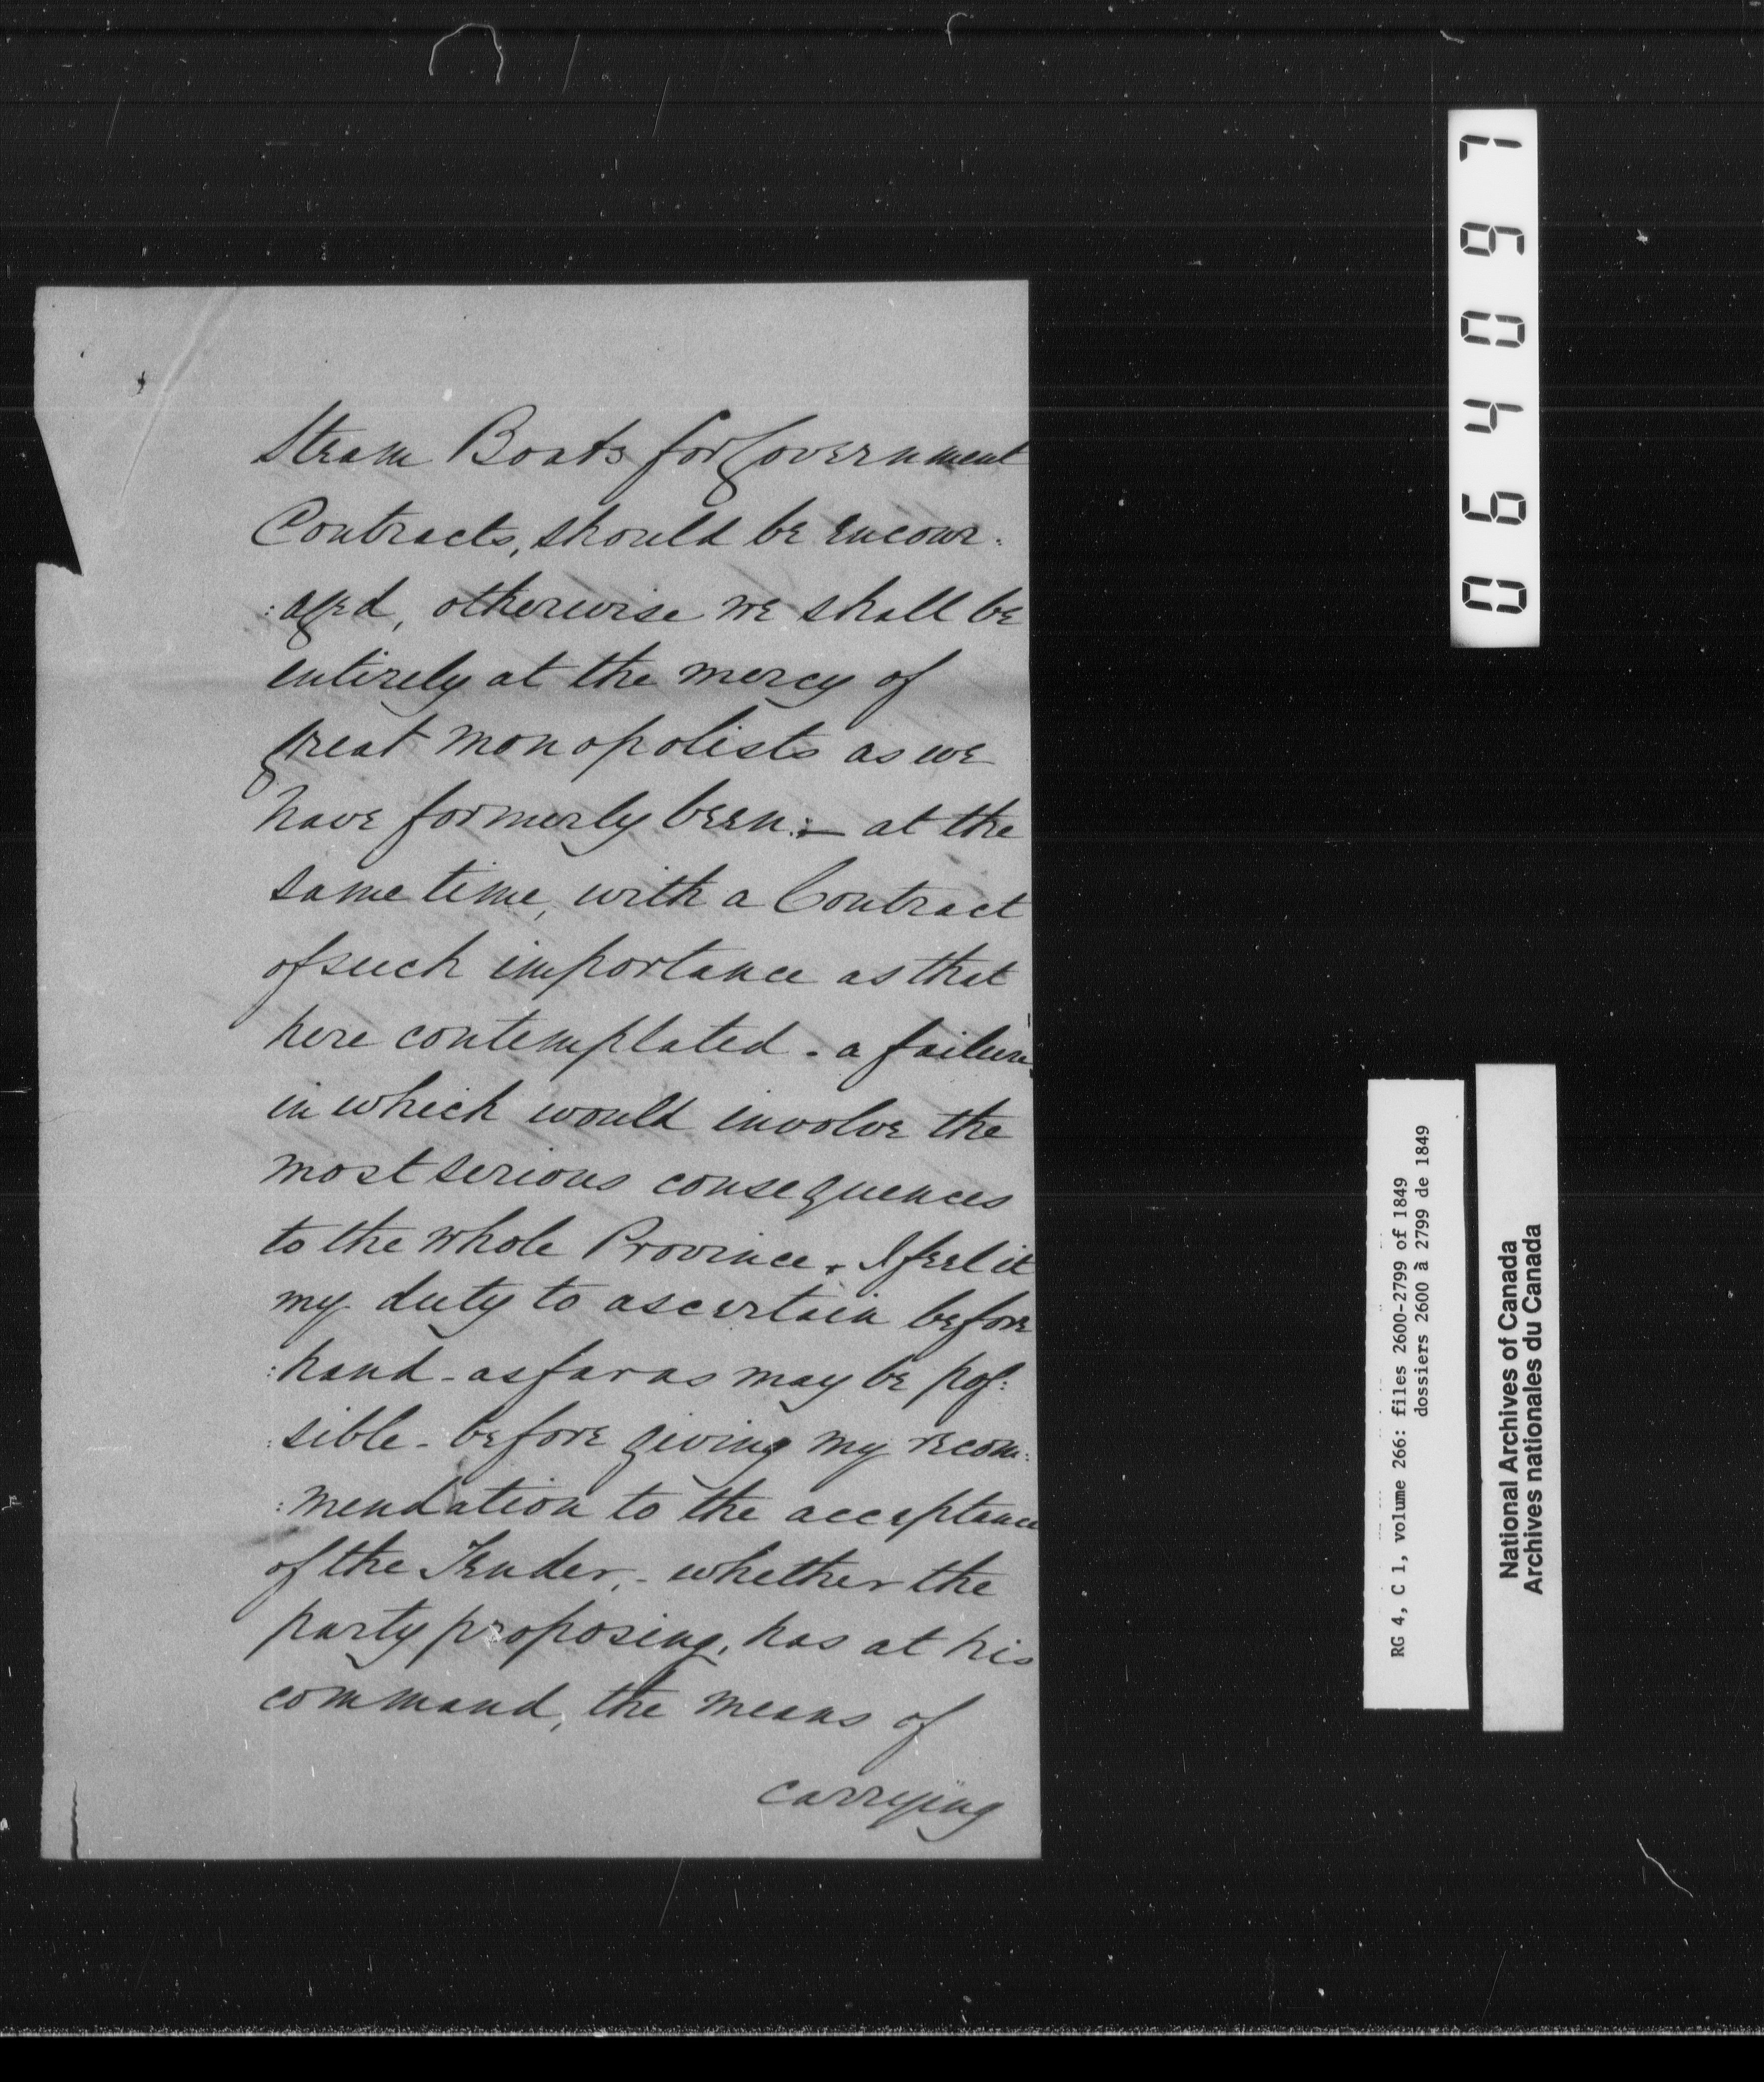 Steam Boats for Government
Contracts, should be encour:
:aged, otherwise we shall be
entirely at the mercy of
great monopolists as we
have formerly been:— at the
same time, with a Contract
of such importance as that
here contemplated - a failure
in which would involve the
most serious consequences
to the whole Province, I feel it
my duty to ascertain before
:hand - as far as may be pos:
:sible - before giving my recom:
:mendation to the acceptance
of the Tender, - whether the
party proposing, has at his
command, the means of
carrying
064097
RG 4, C 1, volume 266: files 2600-2799 of 1849
dossiers 2600 à 2799 de 1849
National Archives of Canada
Archives nationales du Canada